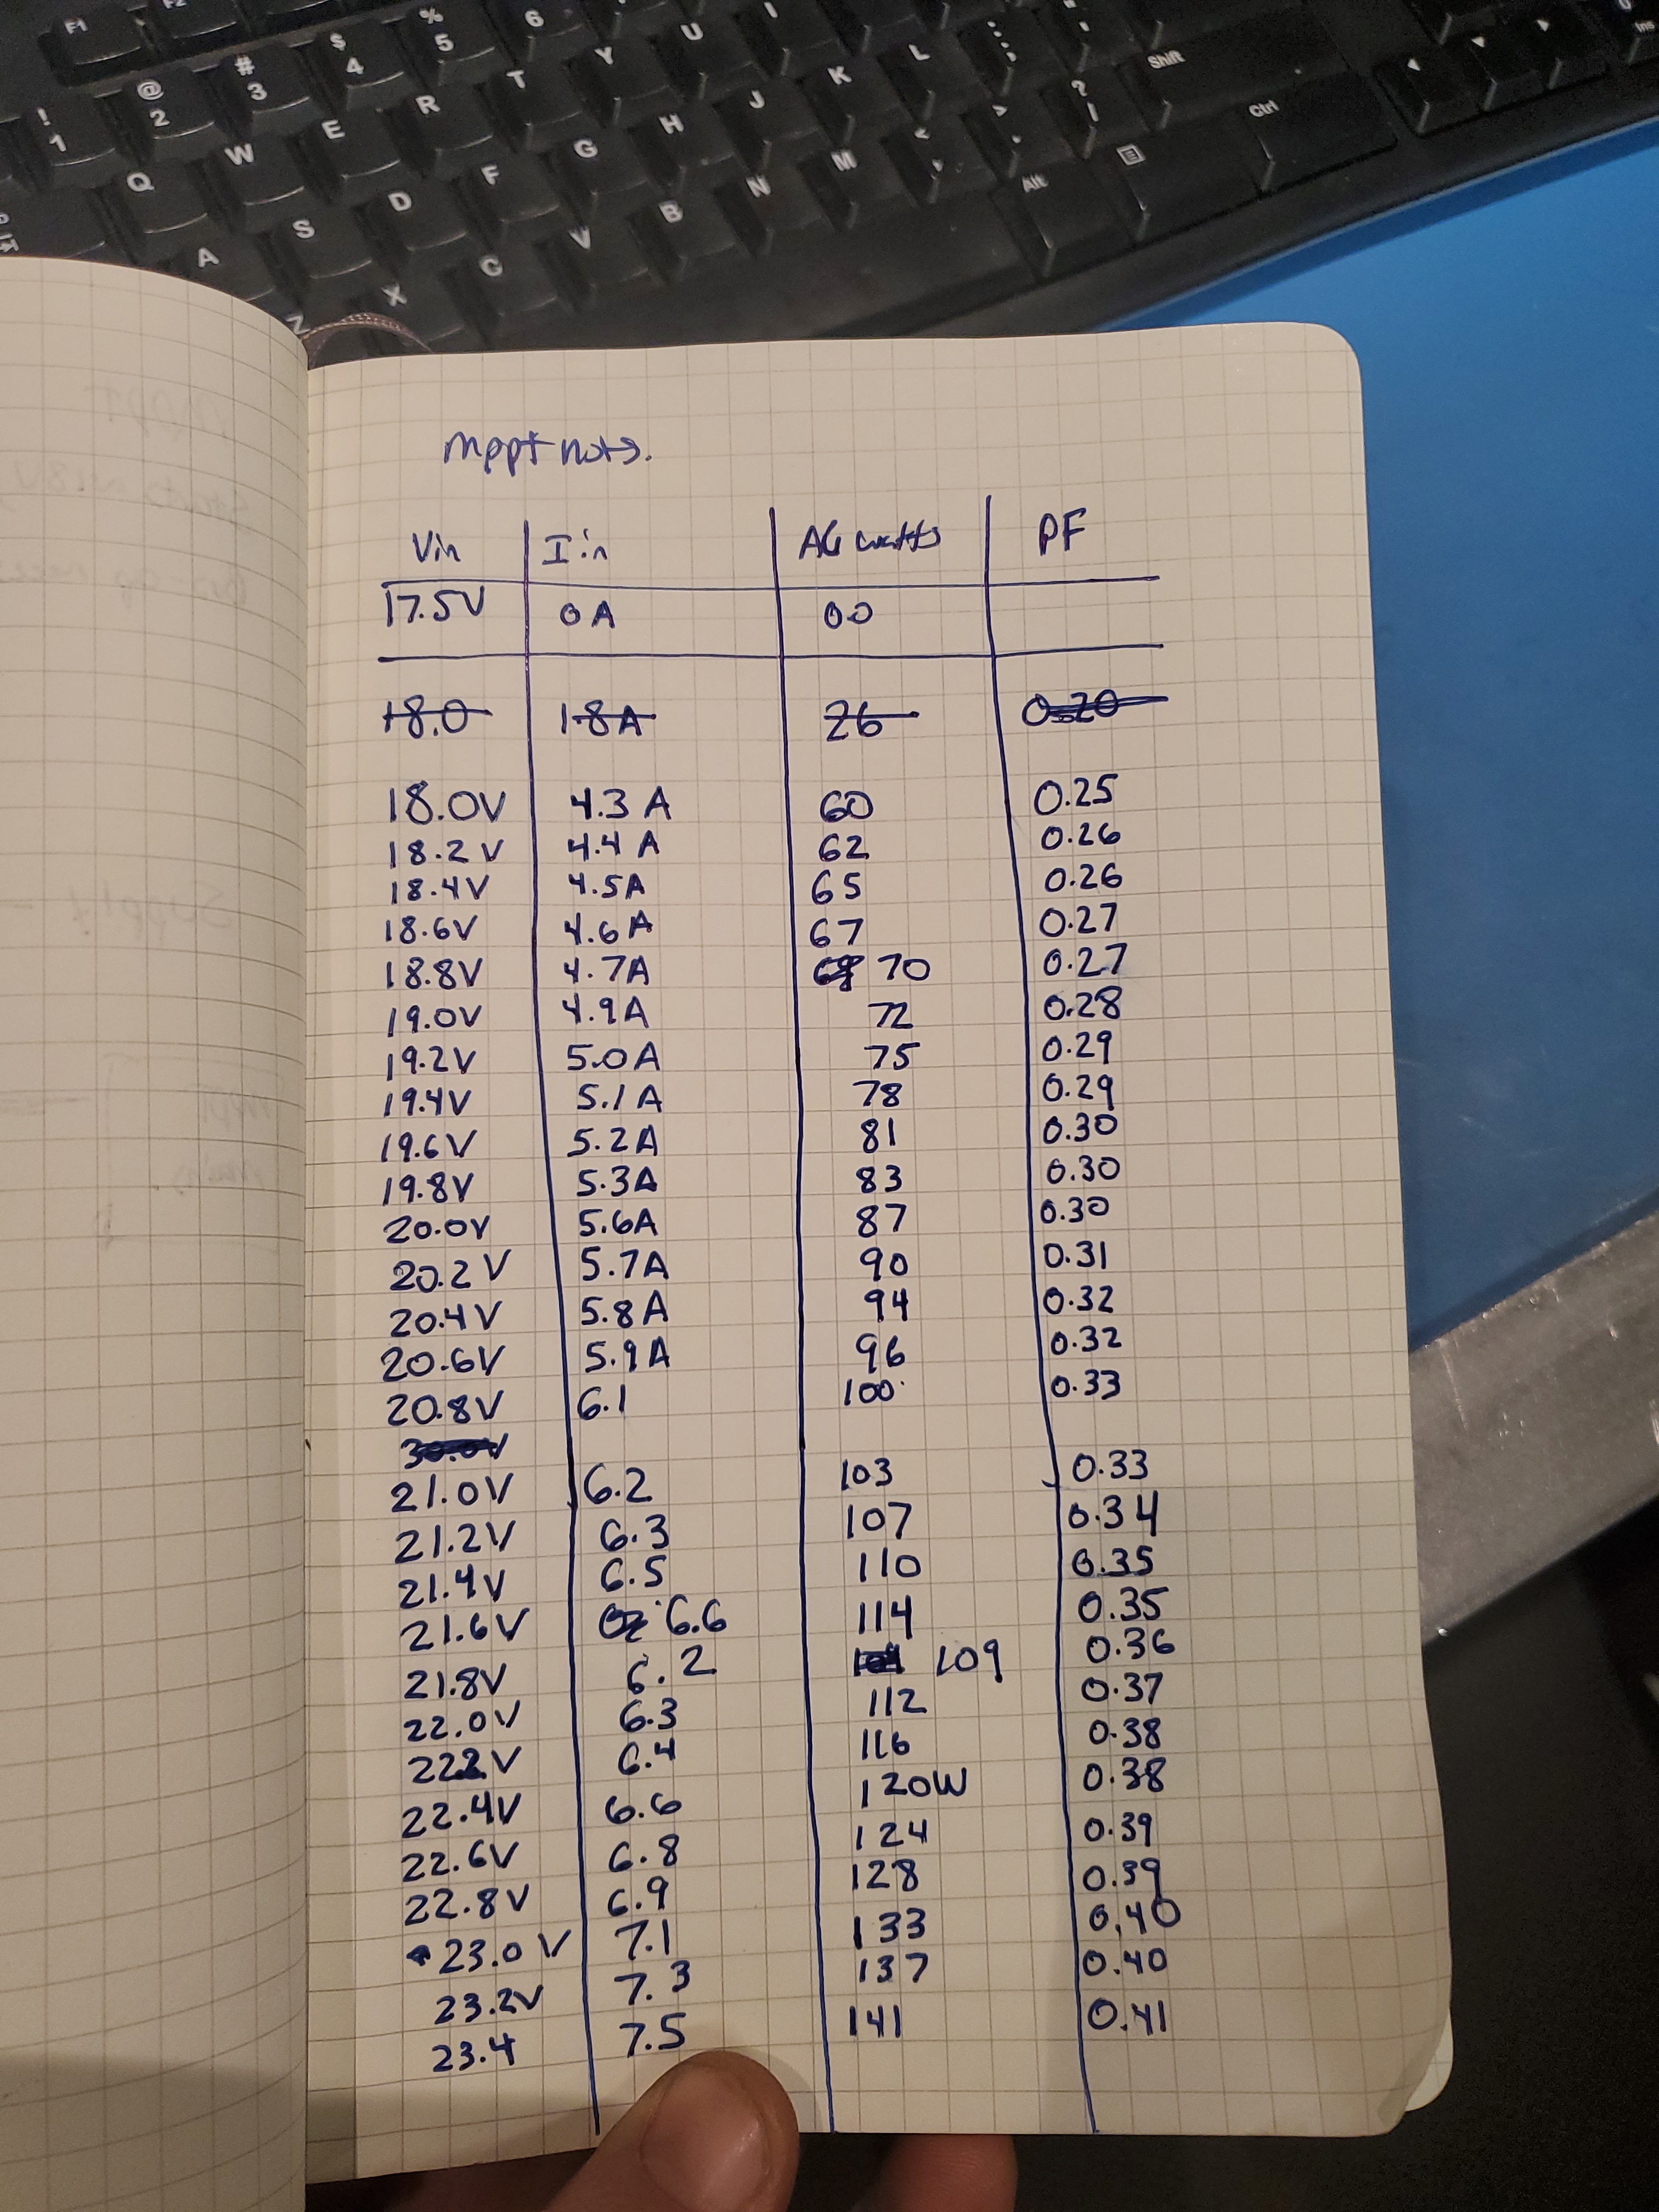 F1 F2
! 1 @ 2 # 3 $ 4 % 5 6
Q W E R T Y U I
A S D F G H J K L : ;
Z X C V B N M < , > . ? / Shift
Alt Ctrl
Ins
mppt nots.
Vin I in AC watts PF
17.5V 0A 00
18.0 1.8A 26 0.20
18.0V 4.3 A 60 0.25
18.2 V 4.4 A 62 0.26
18.4V 4.5A 65 0.26
18.6V 4.6 A 67 0.27
18.8V 4.7A 70 0.27
19.0V 4.9A 72 0.28
19.2V 5.0 A 75 0.29
19.4V 5.1 A 78 0.29
19.6V 5.2A 81 0.30
19.8V 5.3A 83 0.30
20.0V 5.6A 87 0.30
20.2 V 5.7A 90 0.31
20.4V 5.8 A 94 0.32
20.6V 5.9 A 96 0.32
20.8V 6.1 100 0.33
30.0V
21.0V 6.2 103 0.33
21.2V 6.3 107 0.34
21.4V 6.5 110 0.35
21.6V 6.6 114 0.35
21.8V 6.2 109 0.36
22.0V 6.3 112 0.37
22.2V 6.4 116 0.38
22.4V 6.6 120W 0.38
22.6V 6.8 124 0.39
22.8V 6.9 128 0.39
23.0 V 7.1 133 0.40
23.2V 7.3 137 0.40
23.4 7.5 141 0.41